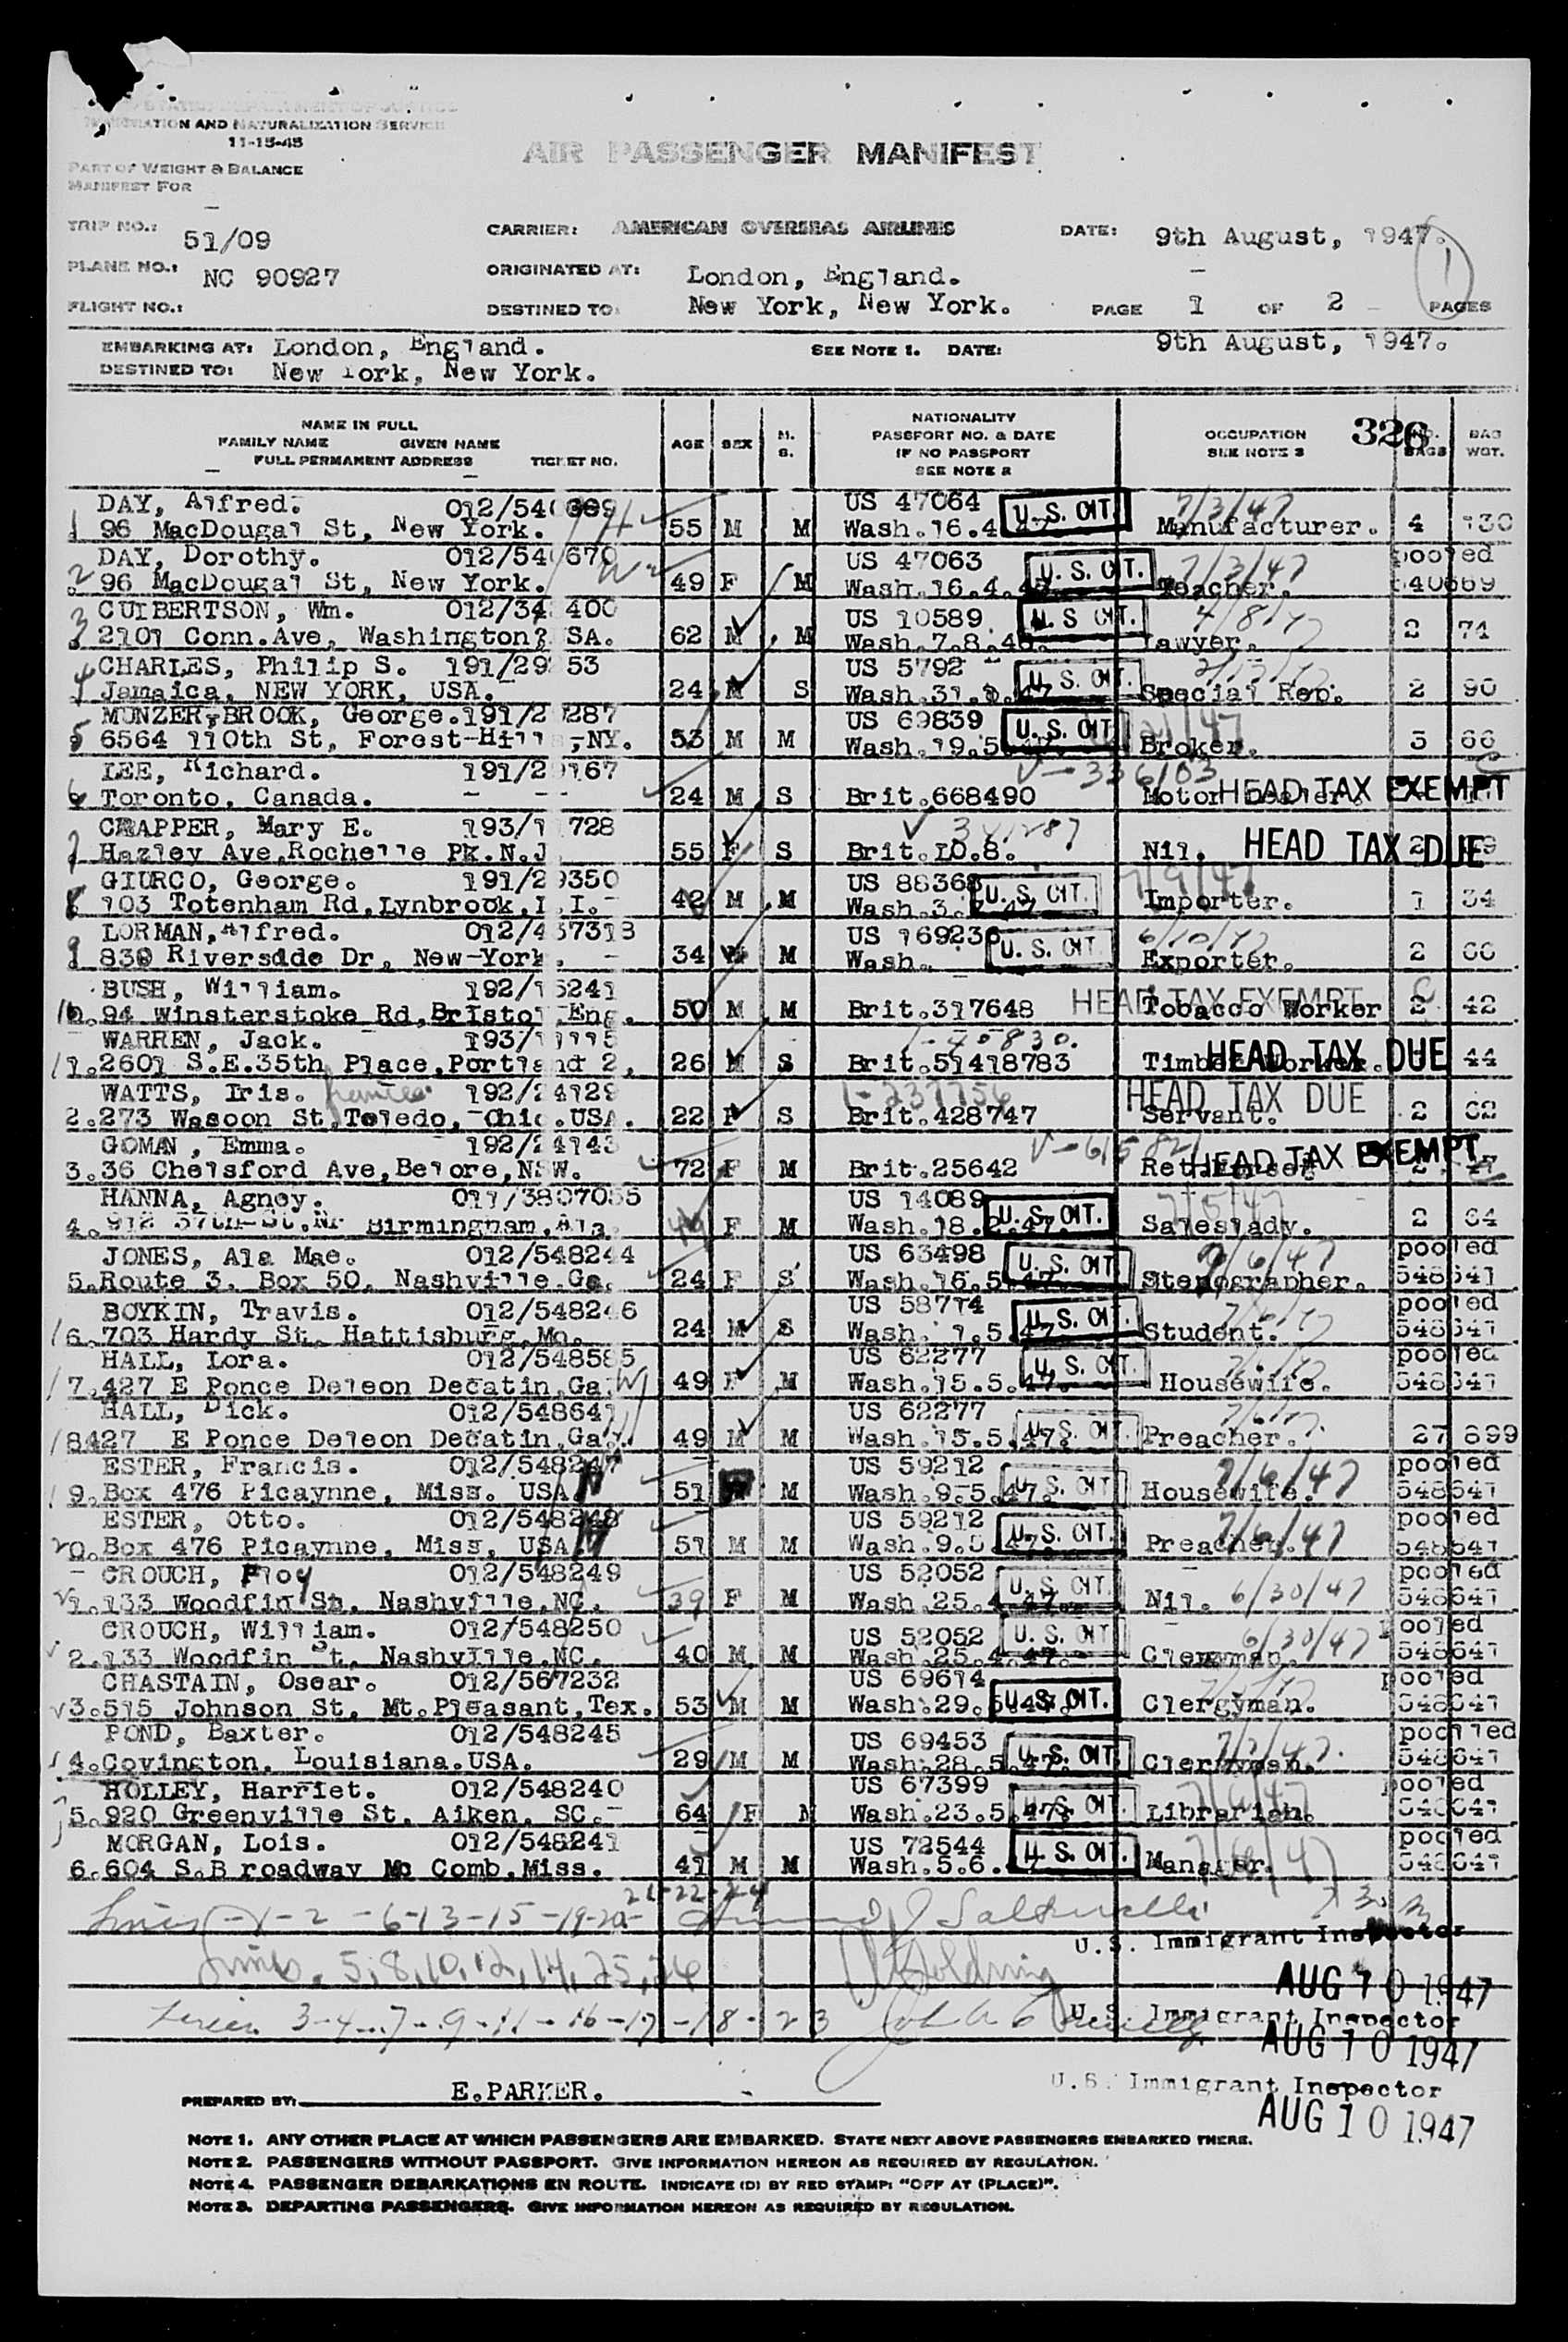 IMMIGRATION AND NATURALIZATION SERVICE
11-15-45
AIR PASSENGER MANIFEST
PART OF WEIGHT & BALANCE
MANIFEST FOR
TRIP NO.: 51/09 CARRIER: AMERICAN OVERSEAS AIRLINES DATE: 9th August, 1947.
PLANE NO.: NC 90927 ORIGINATED AT: London, England. 1
FLIGHT NO.: DESTINED TO: New York, New York. PAGE 1 OF 2 PAGES
EMBARKING AT: London, England. SEE NOTE 1. DATE: 9th August, 1947.
DESTINED TO: New York, New York.
NAME IN FULL
FAMILY NAME GIVEN NAME
FULL PERMANENT ADDRESS TICKET NO.
AGE SEX M. S.
NATIONALITY
PASSPORT NO. & DATE
IF NO PASSPORT
SEE NOTE 2
OCCUPATION
SEE NOTE 3
326
NO. BAGS
BAG WGT.
DAY, Alfred. US 47064 U.S. CIT. 7/3/47
1 96 MacDougal St, New York. 55 M M Wash.16.4. Manufacturer. 4 130
DAY, Dorothy. 012/540670 US 47063 U.S. CIT. 7/3/47 pooled
2. 96 MacDougal St, New York. 49 F M Wash.16.4. Teacher. 540669
CUIBERTSON, Wm. US 10589 U.S CIT.
3 2101 Conn.Ave, Washington, USA. 62 M M Wash.7.8. Lawyer. 2 74
CHARLES, Philip S. US 5792 U.S. CIT.
4 Jamaica, NEW YORK, USA. 24 M S Wash.31. Special Rep. 2 90
MUNZER-BROOK, George. US 69839 U.S. CIT.
5 6564 110th St, Forest-Hills,NY. 53 M M Wash.19.5. Broker. 3 66
LEE, Richard. V-336103
6 Toronto, Canada. 24 M S Brit.668490 Motor HEAD TAX EXEMPT
CRAPPER, Mary E.
7 Hazley Ave,Rochelle PK.N.J 55 F S Brit. Nil. HEAD TAX DUE
GIURCO, George. 191/29350 US U.S. CIT. 7/9/47
8 103 Totenham Rd,Lynbrook, 42 M M Wash.3. Importer. 1 34
LORMAN, Alfred. US U.S. CIT. 6/10/47
9 Riversdde Dr, New-York. 34 M M Wash. Exporter. 2 66
BUSH, William. 192/15241
10.94 Winsterstoke Rd,Bristol,Eng. 50 M M Brit.317648 HEAD TAX EXEMPT Tobacco Worker 2 42
WARREN, Jack.
11.2601 S.E.35th Place,Portland 2, 26 M S Brit.51418783 Timber Worker. HEAD TAX DUE 44
WATTS, Iris. 192/24129
2.273 Wasoon St,Toledo, Ohio.USA. 22 F S Brit.428747 Servant. HEAD TAX DUE 2 62
GOMAN, Emma. 192/24143
3.36 Chelsford Ave,Belore,NSW. 72 F M Brit.25642 HEAD TAX EXEMPT
HANNA, Agney. US 14089 U.S. CIT. 7/5/47
4.912 57th-St.Nr Birmingham,Ala. F M Wash.18.2.47. Saleslady. 2 64
JONES, Ala Mae. 012/548244 US 63498 U.S. CIT. 7/6/47 pooled
5.Route 3, Box 50, Nashville,Ga. 24 F S Wash.16.5.47. Stenographer. 548641
BOYKIN, Travis. 012/548246 US 58774 U.S. CIT. pooled
6.703 Hardy St, Hattisburg,Mo. 24 M S Wash. 1.5.47. Student. 548641
HALL, Lora. 012/548585 US 62277 U.S. CIT. pooled
17.427 E Ponce Deleon Decatin,Ga. 49 F M Wash.15.5.47. Housewife. 548641
HALL, Dick. 012/548641 US 62277 U.S. CIT.
18427 E Ponce Deleon Decatin,Ga. 49 M M Wash.15.5.47. Preacher. 27 899
ESTER, Francis. 012/548247 US 59212 U.S. CIT. 7/6/47 pooled
19.Box 476 Picaynne, Miss. USA. 51 M Wash.9.5.47. Housewife. 548641
ESTER, Otto. 012/548248 US 59212 U.S. CIT. 7/6/47 pooled
20.Box 476 Picaynne, Miss, USA. 51 M M Wash.9.5.47. Preacher. 548641
CROUCH, Floy 012/548249 US 52052 U.S. CIT. pooled
21.133 Woodfin St, Nashville,NC. 39 F M Wash.25.4.47. Nil. 6/30/47 548641
CROUCH, William. 012/548250 US 52052 U.S. CIT. 6/30/47 pooled
2.133 Woodfin St, Nashville,NC. 40 M M Wash.25.4.47. Clergyman. 548641
CHASTAIN, Osear. 012/567232 US 69614 U.S. CIT. pooled
3.515 Johnson St, Mt.Pleasant,Tex. 53 M M Wash.29.5.47. Clergyman. 548641
POND, Baxter. 012/548245 US 69453 U.S. CIT. poolled
4.Covington, Louisiana.USA. 29 M M Wash.28.5.47. Clergyman. 548641
HOLLEY, Harriet. 012/548240 US 67399 U.S. CIT. pooled
5.920 Greenville St, Aiken, SC. 64 F M Wash.23.5.47. Librarian. 548641
MORGAN, Lois. 012/548241 US 72544 U.S. CIT. pooled
6.604 S.Broadway Mc Comb,Miss. 41 M M Wash.5.6. Manager. 548641
21-22-24
Lines -1-2-6-13-15-19-20-
U.S. Immigrant Inspector
Lines. 5,8,10,12,14,25,26
AUG 10 1947
Lines 3-4-7-9-11-16-17-18-23
U.S. Immigrant Inspector
AUG 10 1947
PREPARED BY: E.PARKER.
U.S. Immigrant Inspector
AUG 10 1947
NOTE 1. ANY OTHER PLACE AT WHICH PASSENGERS ARE EMBARKED. STATE NEXT ABOVE PASSENGERS EMBARKED THERE.
NOTE 2. PASSENGERS WITHOUT PASSPORT. GIVE INFORMATION HEREON AS REQUIRED BY REGULATION.
NOTE 4. PASSENGER DEBARKATIONS EN ROUTE. INDICATE (D) BY RED STAMP: "OFF AT (PLACE)".
NOTE 3. DEPARTING PASSENGERS. GIVE INFORMATION HEREON AS REQUIRED BY REGULATION.